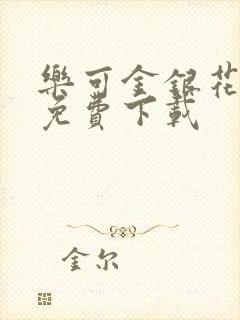 樂可金銀花
免費下載
金尔